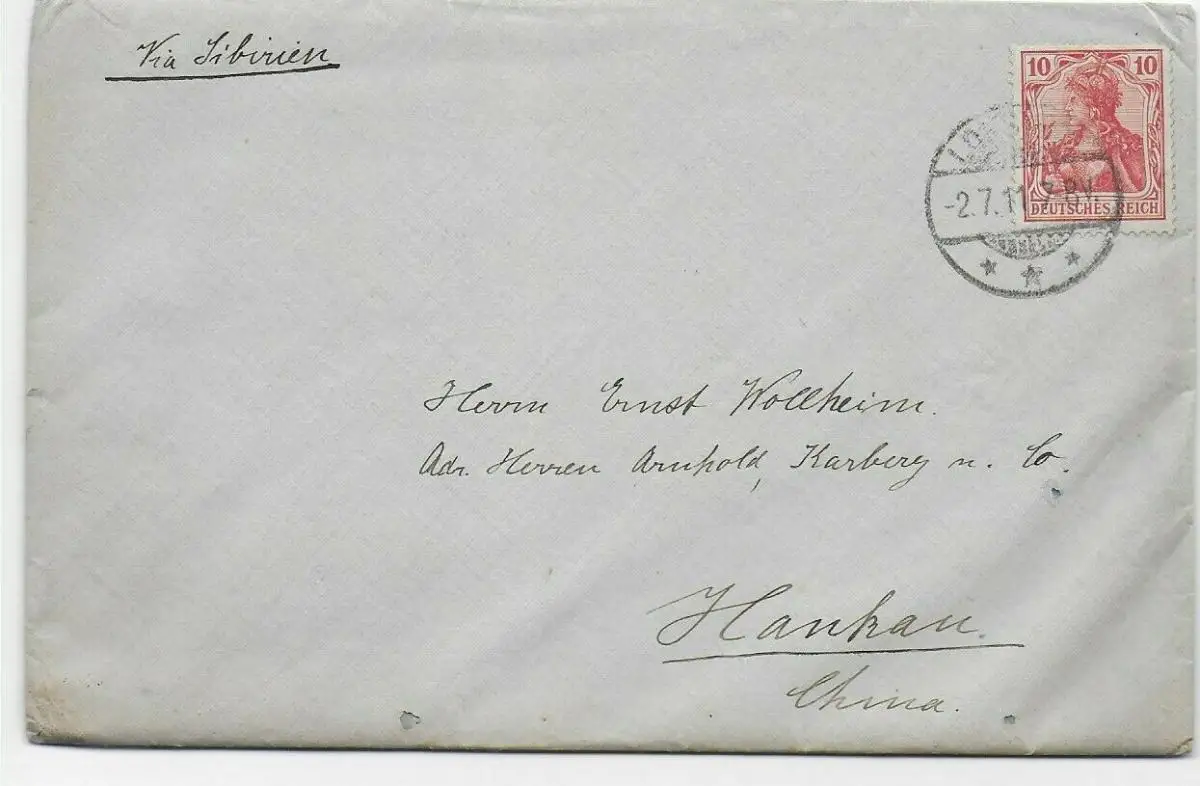 Via Sibirien
10 10
DEUTSCHES REICH
-2.7.11 7-8V.
Herrn Ernst Wollheim.
Adr. Herren Arnhold, Karberg u. Co.
Hankau.
China.